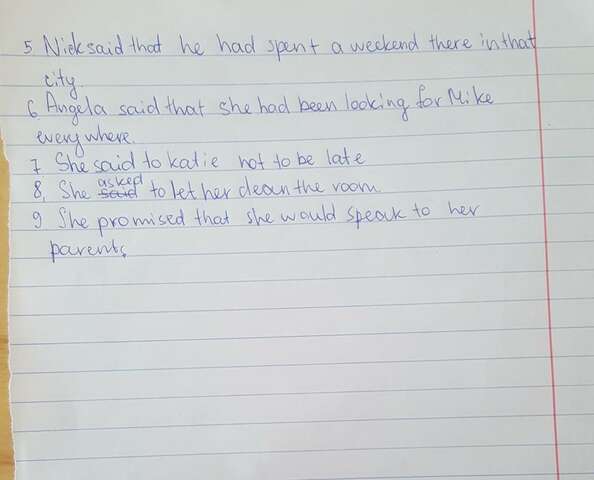 5 Nick said that he had spent a weekend there in that
city.
6 Angela said that she had been looking for Mike
everywhere.
7. She said to Katie not to be late
8. She said asked to let her clean the room.
9 She promised that she would speak to her
parents.